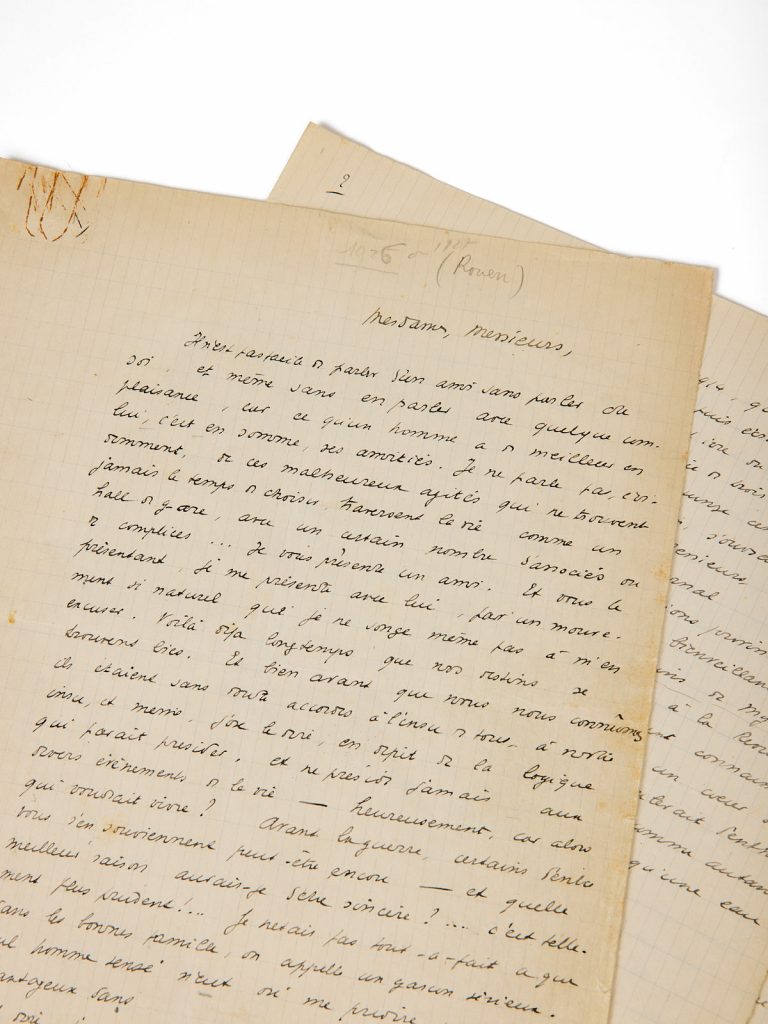 1926 o 1925
(Rouen)
Mesdames, Messieurs,
Il n'est pas facile de parler d'un ami sans parler de
soi, et même sans en parler avec quelque com-
plaisance, car ce qu'un homme a de meilleur en
lui, c'est en somme, ses amitiés. Je ne parle pas, évi-
demment, de ces malheureux agités qui ne trouvent
jamais le temps de choisir, traversent la vie comme un
hall de gare, avec un certain nombre d'associés ou
de complices... Je vous présente un ami. Et vous le
présentant, je me présente avec lui, par un mouve-
ment si naturel que je ne songe même pas à m'en
excuser. Voilà déjà longtemps que nos destins se
trouvent liés. Et bien avant que nous nous connûmes
ils étaient sans doute accordés à l'insu de tous, à notre
insu, et même, j'ose le dire, en dépit de la logique
qui parait présider, et ne préside jamais aux
divers évènements de la vie — heureusement, car alors
qui voudrait vivre? Avant la guerre, certains d'entre
vous s'en souviennent peut-être encore — et quelle
meilleure saison aurais-je d'être sincère?... c'est telle-
ment plus prudent!... Je n'étais pas tout-à-fait ce que
dans les bonnes familles, on appelle un garçon sérieux.
homme sensé n'eut osé me prédire
sans
2
bienveillan
à la
un cœur
d'entr
autan
qu'une eau